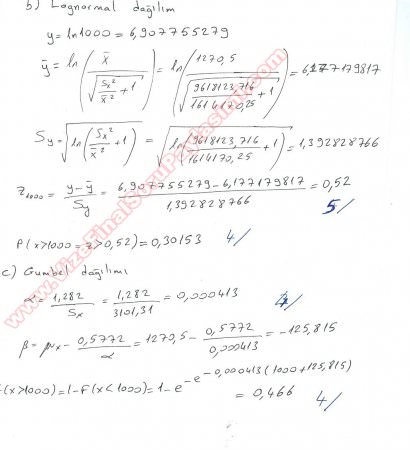 b) Lognormal dağılım
y = ln1000 = 6,907755279
ȳ = ln( x̄ / √(Sx²/x̄² + 1) ) = ln( 1270,5 / √(9618123,716/1614170,25 + 1) ) = 6,177179817
Sy = √( ln(Sx²/x̄² + 1) ) = √( ln(9618123,716/1614170,25 + 1) ) = 1,392828766
Z1000 = (y-ȳ)/Sy = (6,907755279-6,177179817)/1,392828766 = 0,52
5/
P(x>1000 = z>0,52) = 0,30153 4/
c) Gumbel dağılımı
α = 1,282/Sx = 1,282/3101,31 = 0,000413 4/
β = μx - 0,5772/α = 1270,5 - 0,5772/0,000413 = -125,815
(x>1000) = 1-F(x<1000) = 1-e^-e^-0,000413(1000+125,815)
= 0,466 4/
www.VizeFinalSoruPaylasimi.com